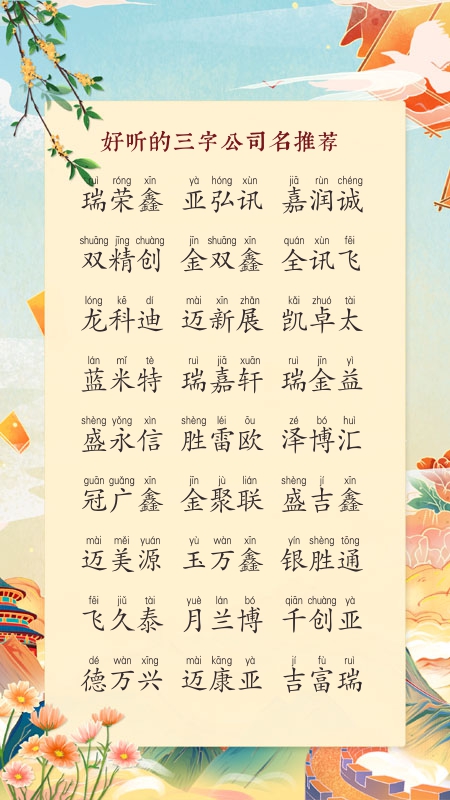 好听的三字公司名推荐
ruì róng xīn yà hóng xùn jiā rùn chéng
瑞荣鑫 亚弘讯 嘉润诚
shuāng jīng chuàng jīn shuāng xīn quán xùn fēi
双精创 金双鑫 全讯飞
lóng kē dí mài xīn zhǎn kǎi zhuó tài
龙科迪 迈新展 凯卓太
lán mǐ tè ruì jiā xuān ruì jīn yì
蓝米特 瑞嘉轩 瑞金益
shèng yǒng xìn shèng léi ōu zé bó huì
盛永信 胜雷欧 泽博汇
guān guǎng xīn jīn jù lián shèng jí xīn
冠广鑫 金聚联 盛吉鑫
mài měi yuán yù wàn xīn yín shèng tōng
迈美源 玉万鑫 银胜通
fēi jiǔ tài yuè lán bó qiān chuàng yà
飞久泰 月兰博 千创亚
dé wàn xīng mài kāng yà jí fù ruì
德万兴 迈康亚 吉富瑞